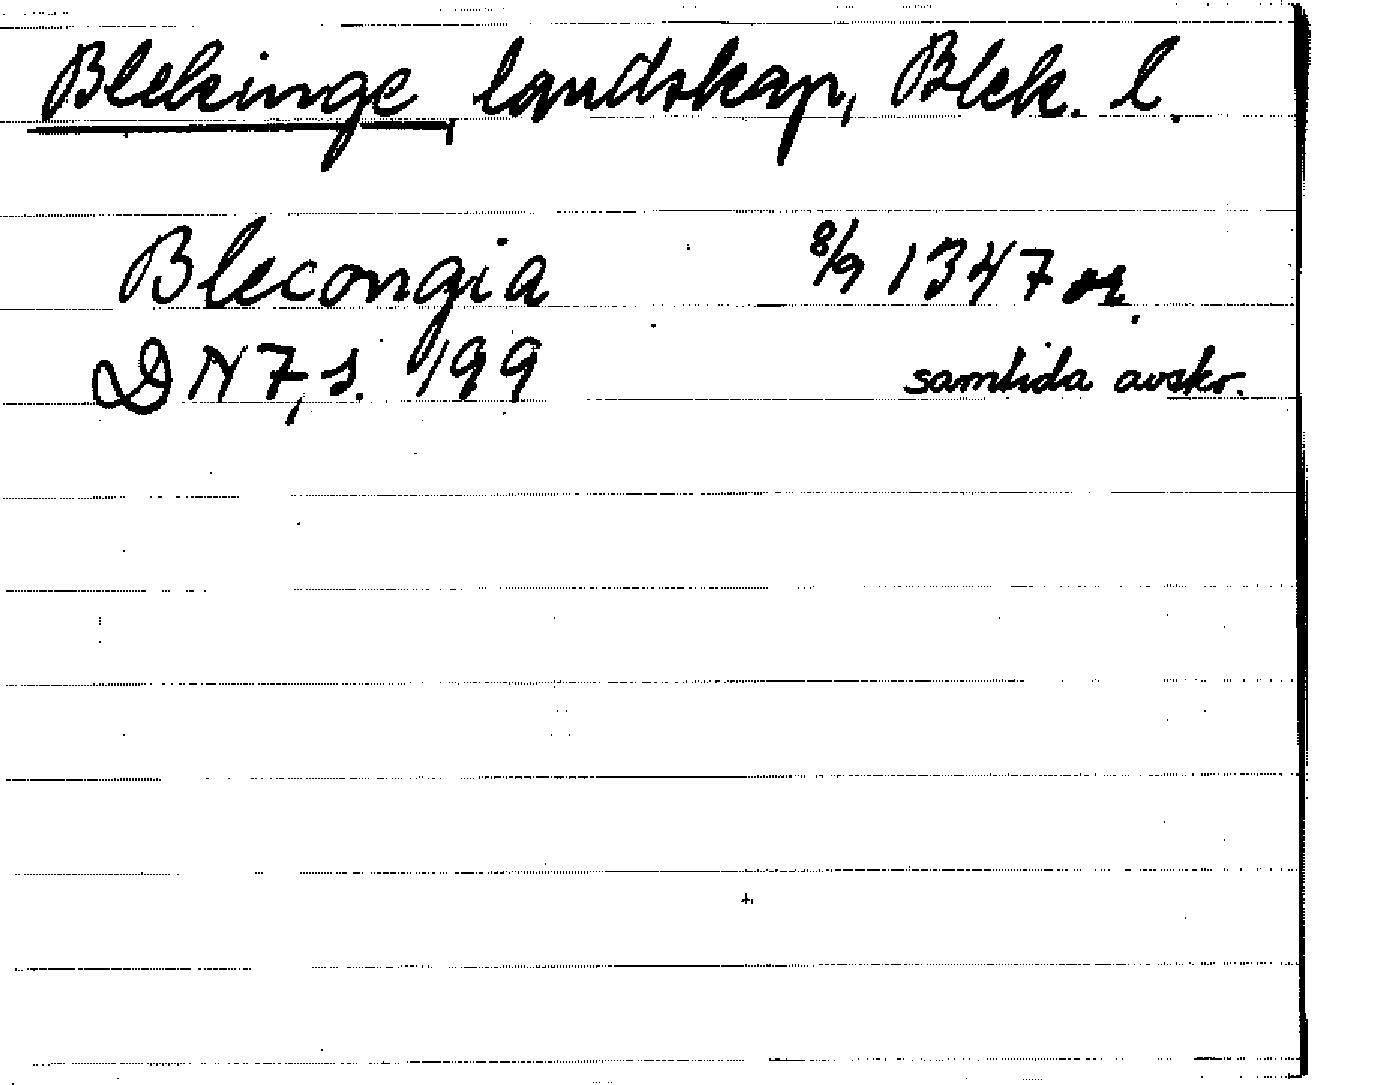 Blekinge landskap, Blek. l.
Blecongia 8/9 1347
DN 7, s. 199 samtida avskr.